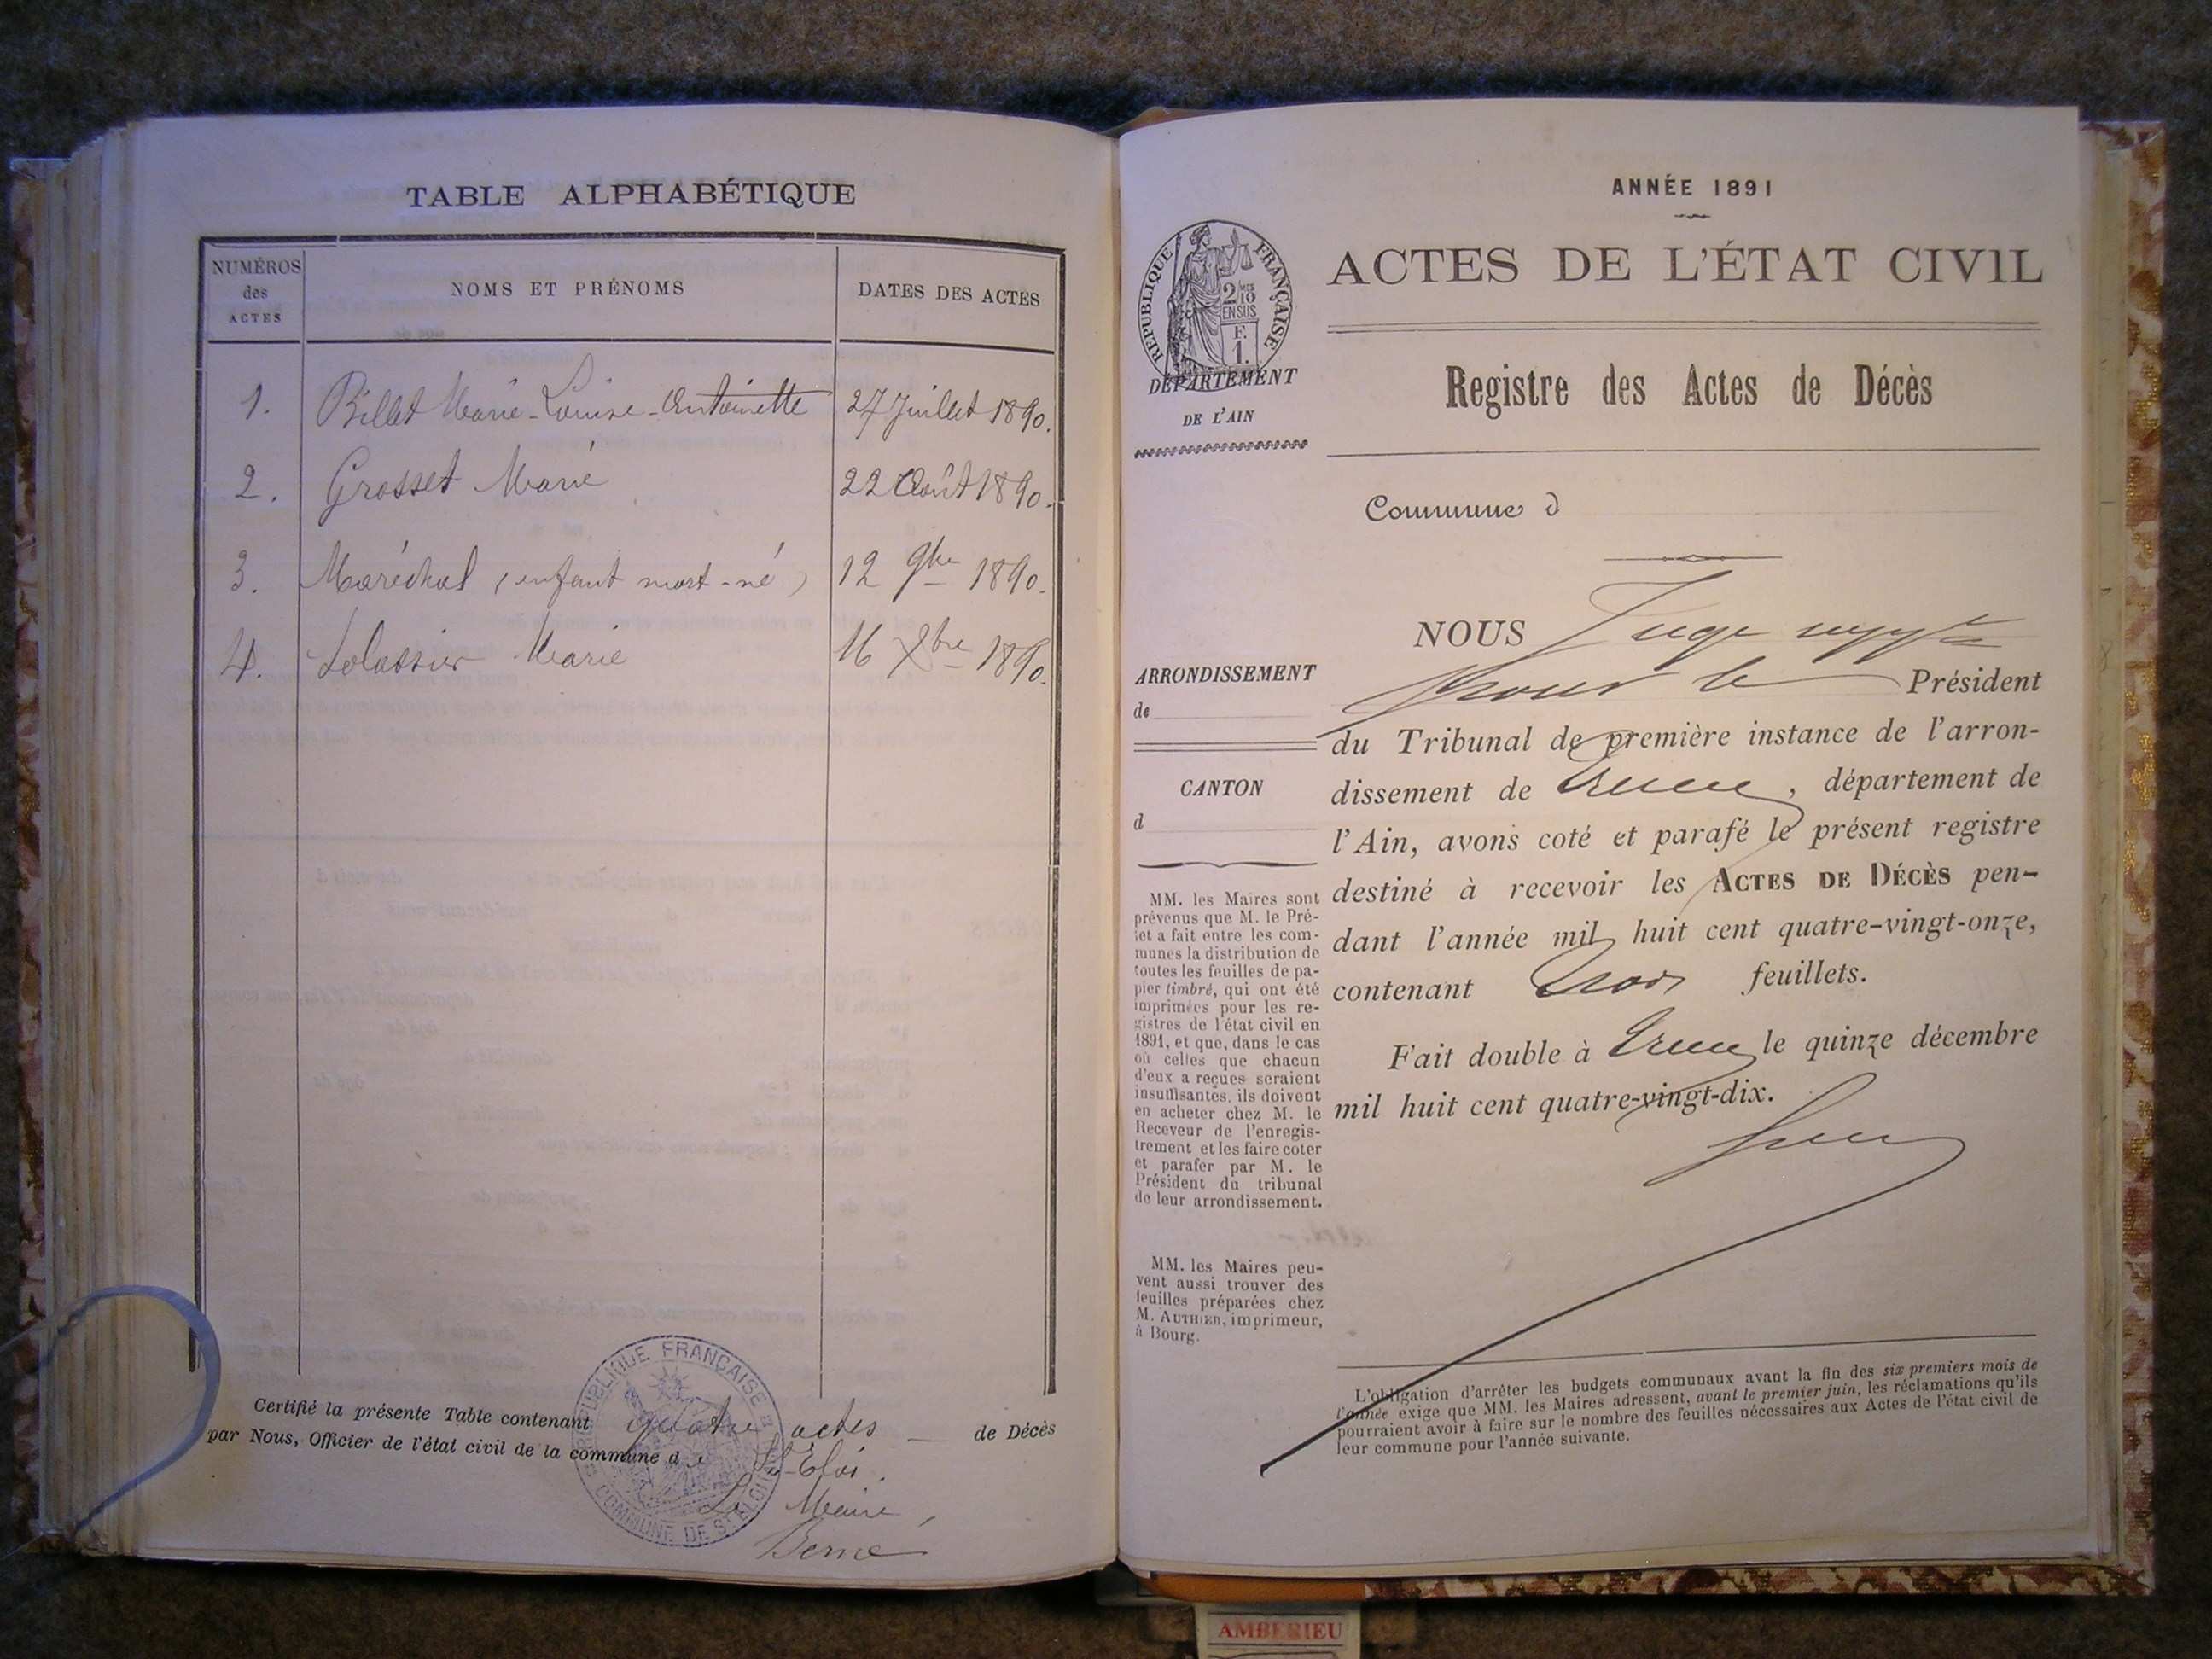 TABLE ALPHABÉTIQUE
NUMÉROS
des
ACTES
NOMS ET PRÉNOMS
DATES DES ACTES
1. Billet Marie-Louise-Antoinette 27 Juillet 1890.
2. Grosset Marie 22 Août 1890.
3. Maréchal (enfant mort-né) 12 9bre 1890.
4. Marie 16 Xbre 1890.
Certifié la présente Table contenant quatre actes — de Décès
par Nous, Officier de l'état civil de la commune de St-Eloi.
Le Maire,
REPUBLIQUE FRANÇAISE
COMMUNE DE ST ELOI
ANNÉE 1891
ACTES DE L'ÉTAT CIVIL
REPUBLIQUE FRANÇAISE
2/10
EN SUS
F.
1.
DÉPARTEMENT
DE L'AIN
Registre des Actes de Décès
Commune d
NOUS Juge
pour le Président
du Tribunal de première instance de l'arron-
dissement de , département de
l'Ain, avons coté et parafé le présent registre
destiné à recevoir les ACTES DE DÉCÈS pen-
dant l'année mil huit cent quatre-vingt-onze,
contenant trois feuillets.
Fait double à le quinze décembre
mil huit cent quatre-vingt-dix.
ARRONDISSEMENT
de
CANTON
d
MM. les Maires sont
prévenus que M. le Pré-
fet a fait entre les com-
munes la distribution de
toutes les feuilles de pa-
pier timbré, qui ont été
imprimées pour les re-
gistres de l'état civil en
1891, et que, dans le cas
où celles que chacun
d'eux a reçues seraient
insuffisantes, ils doivent
en acheter chez M. le
Receveur de l'enregis-
trement et les faire coter
et parafer par M. le
Président du tribunal
de leur arrondissement.
MM. les Maires peu-
vent aussi trouver des
feuilles préparées chez
M. AUTHIER, imprimeur,
à Bourg.
L'obligation d'arrêter les budgets communaux avant la fin des six premiers mois de
l'année exige que MM. les Maires adressent, avant le premier juin, les réclamations qu'ils
pourraient avoir à faire sur le nombre des feuilles nécessaires aux Actes de l'état civil de
leur commune pour l'année suivante.
AMBERIEU